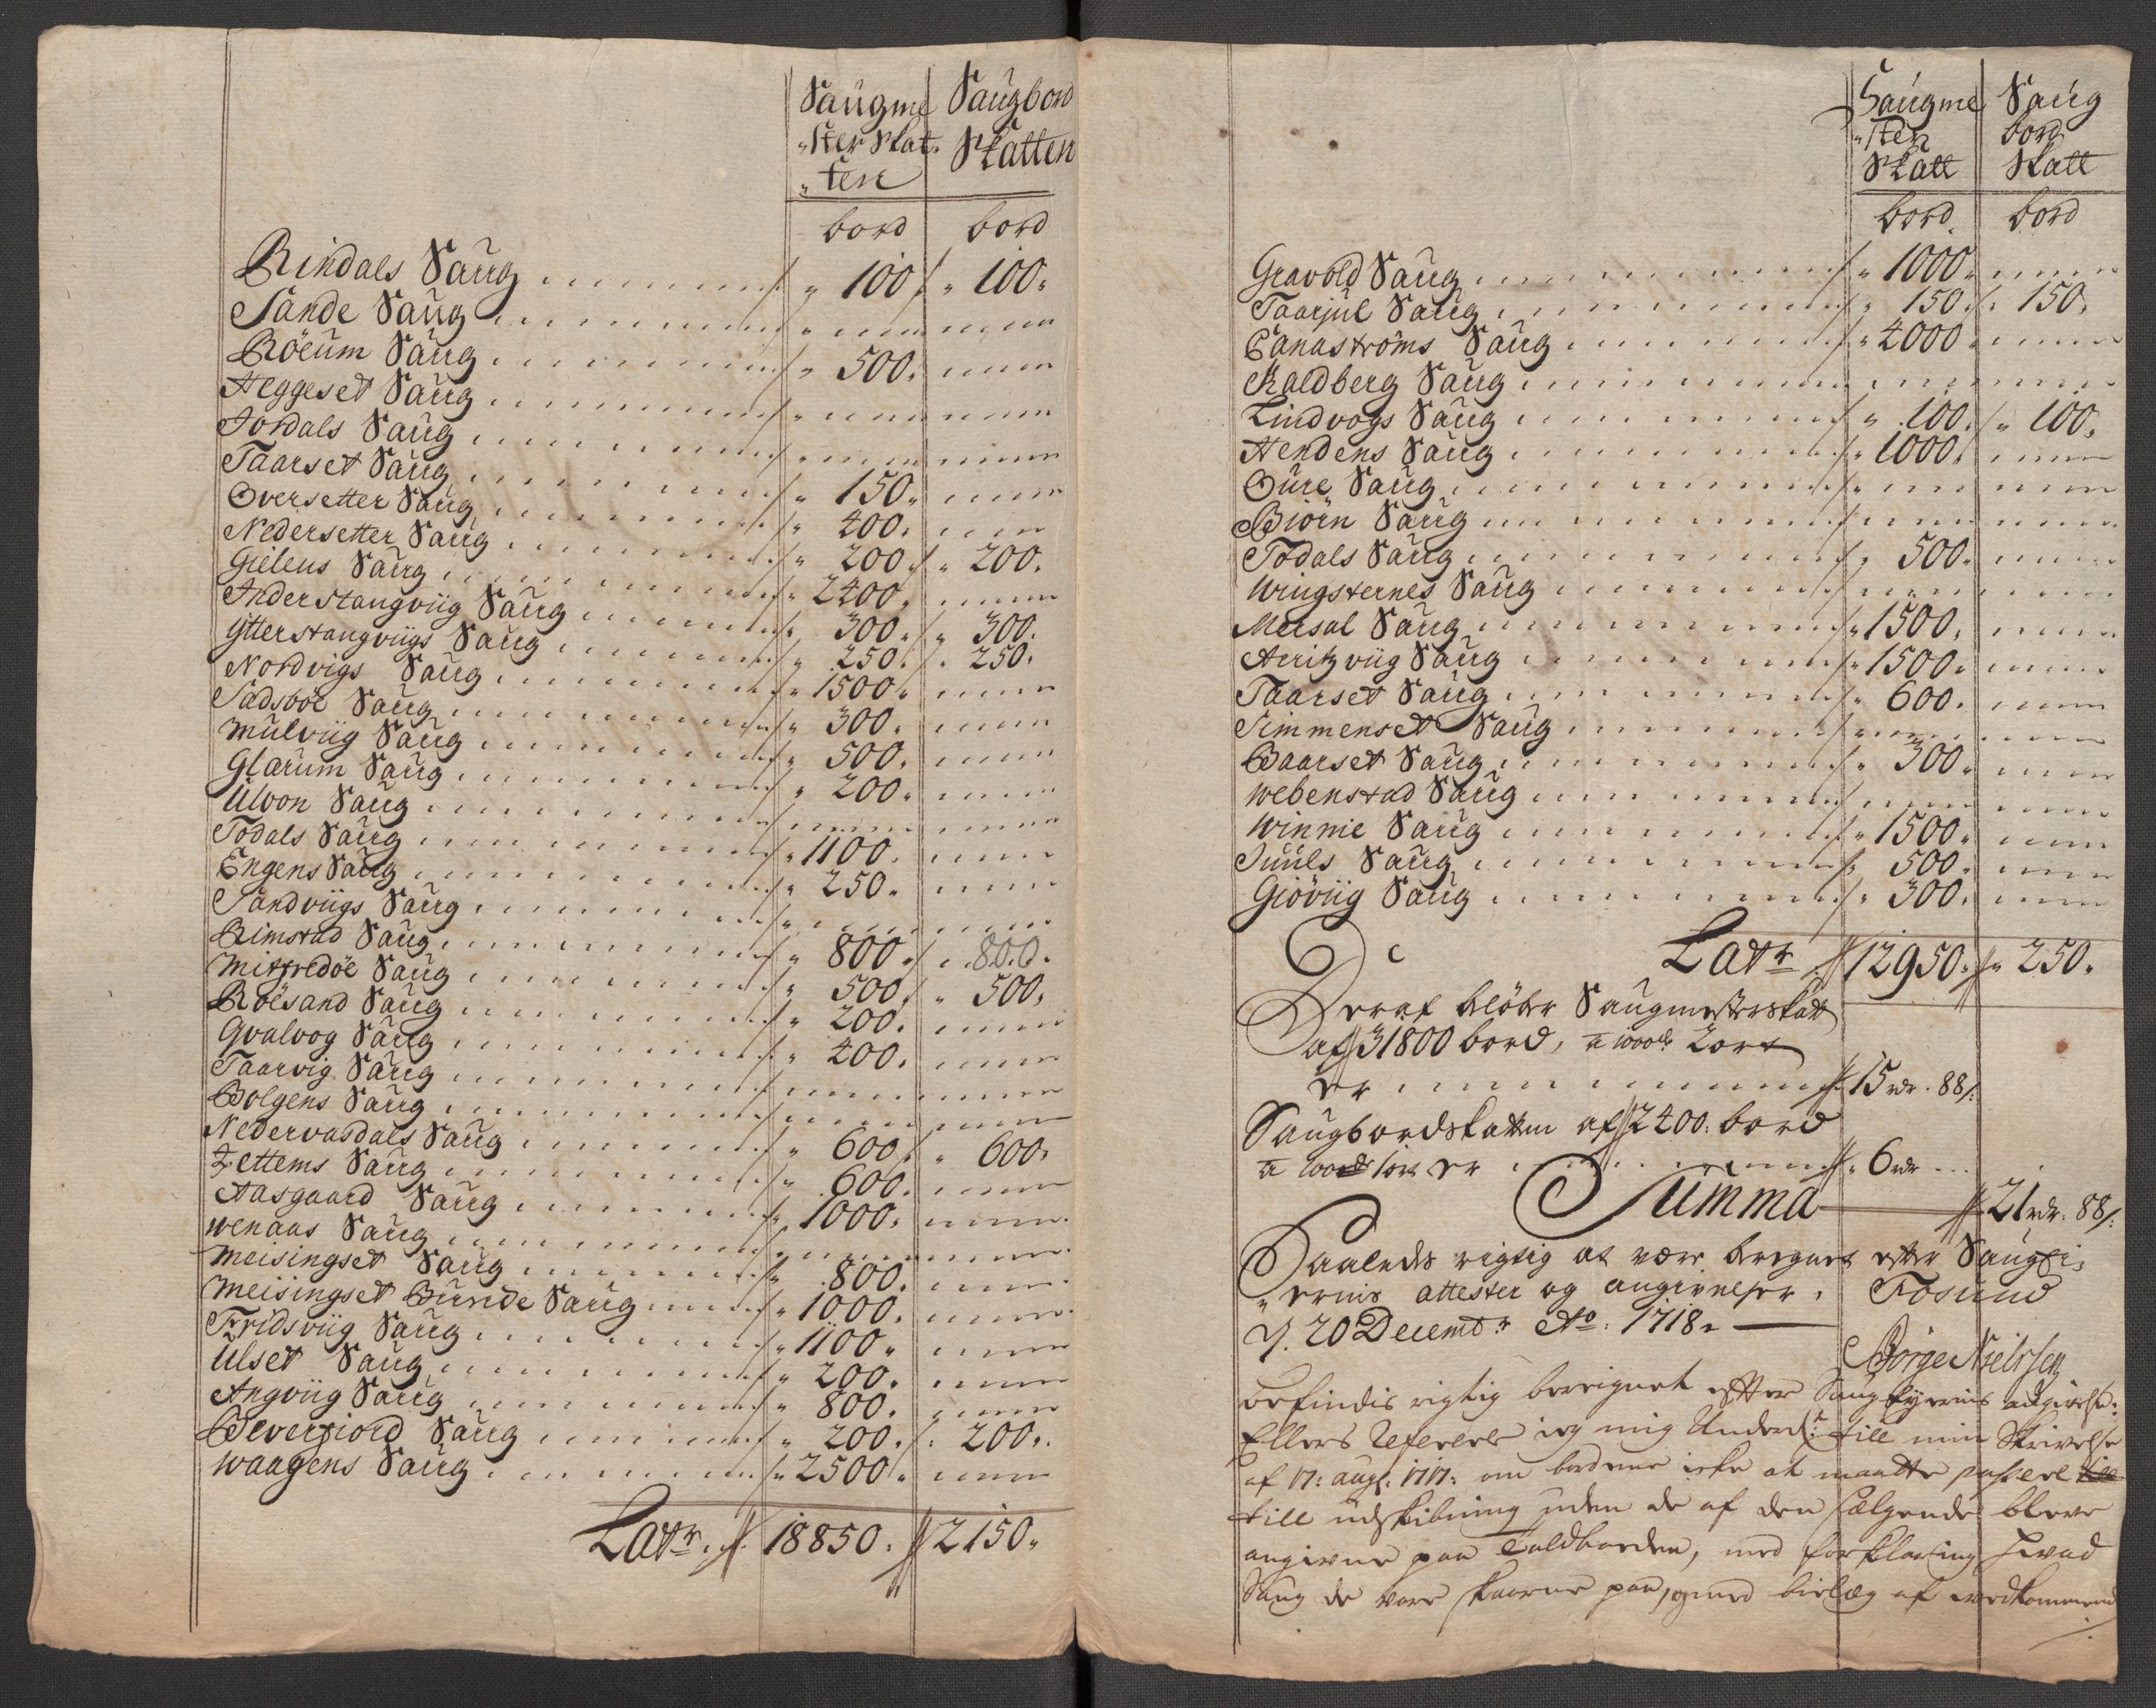 Saugme Saugbord
"ster Skat- Skatten
"ten
bord bord
Rindals Saug " 100 " 100"
Sande Saug
Röeum Saug " 500"
Heggeset Saug
Jordals Saug
Taarset Saug " 150"
Oversetter Saug " 400"
Nedersetter Saug " 200 " 200"
Gielens Saug " 2400"
Inderstangviig Saug " 300" " 300"
Ytterstangviigs Saug " 250" " 250"
Nordvigs Saug " 1500"
Sadsböe Saug " 300"
Mulviig Saug " 500"
Glarum Saug " 200"
Ulvon Saug
Todals Saug " 1100"
Engens Saug " 250"
Sandviigs Saug
Rimstad Saug " 800" " 800"
Mitfredöe Saug " 500" " 500"
Röesand Saug " 200"
Qvalvog Saug " 400"
Taarvig Saug
Bolgens Saug
Nedervasdals Saug " 600" " 600"
Zettems Saug " 600"
Aasgaard Saug " 1000"
Wenaas Saug
Meisingset Saug " 800"
Meisingset Bunde Saug " 1000"
Fridsviig Saug " 1100"
Ulset Saug " 200"
Angviig Saug " 800"
Beverfiord Saug " 200" " 200"
Waagens Saug " 2500"
Latr. 18850. 2150"
Saugme Saug
"ster bord
Skatt Skatt
bord bord
Gravold Saug " 1000"
Taarjul Saug " 150" " 150"
Canastroms Saug " 4000"
Kaldberg Saug
Lindvogs Saug " 100" " 100"
Hendens Saug " 1000"
Oure Saug
Biörn Saug
Todals Saug " 500"
Wingsternes Saug
Meisal Saug " 1500"
Aeritzviig Saug " 1500"
Taarset Saug " 600"
Simmenset Saug
Baarset Saug " 300"
Webenstad Saug
Winnie Saug " 1500"
Juuls Saug " 500"
Giöviig Saug " 300"
Latr 12950" 250"
Deraf beløber Saugmesterskatt
af 31800 bord, a 1000de 2 ort
er 15 rdr. 88 /:
Saugbordskatten af 2400: bord
a 100de 1 ort er " 6 rdr
Summa 21 rdr: 88 /:
Saaledes rigtig at være beregnet efter Saugei,
"ernis attester og angivelser, Fosund
d. 20 Decembr Ao: 1718"
Börge Nielssen
befindis rigtig beregnet efter Saug Eyernis angivelse:
Ellers Refererer ieg mig Underd: till min Skrivelse
af 17: aug: 1717: om bordene icke at maatte passere
till udskibning uden de af den sælgende bleve
angivne paa Toldboeden, med forklaring hvad
Saug de vare skaarne paa, og med bielæg af vedkommend